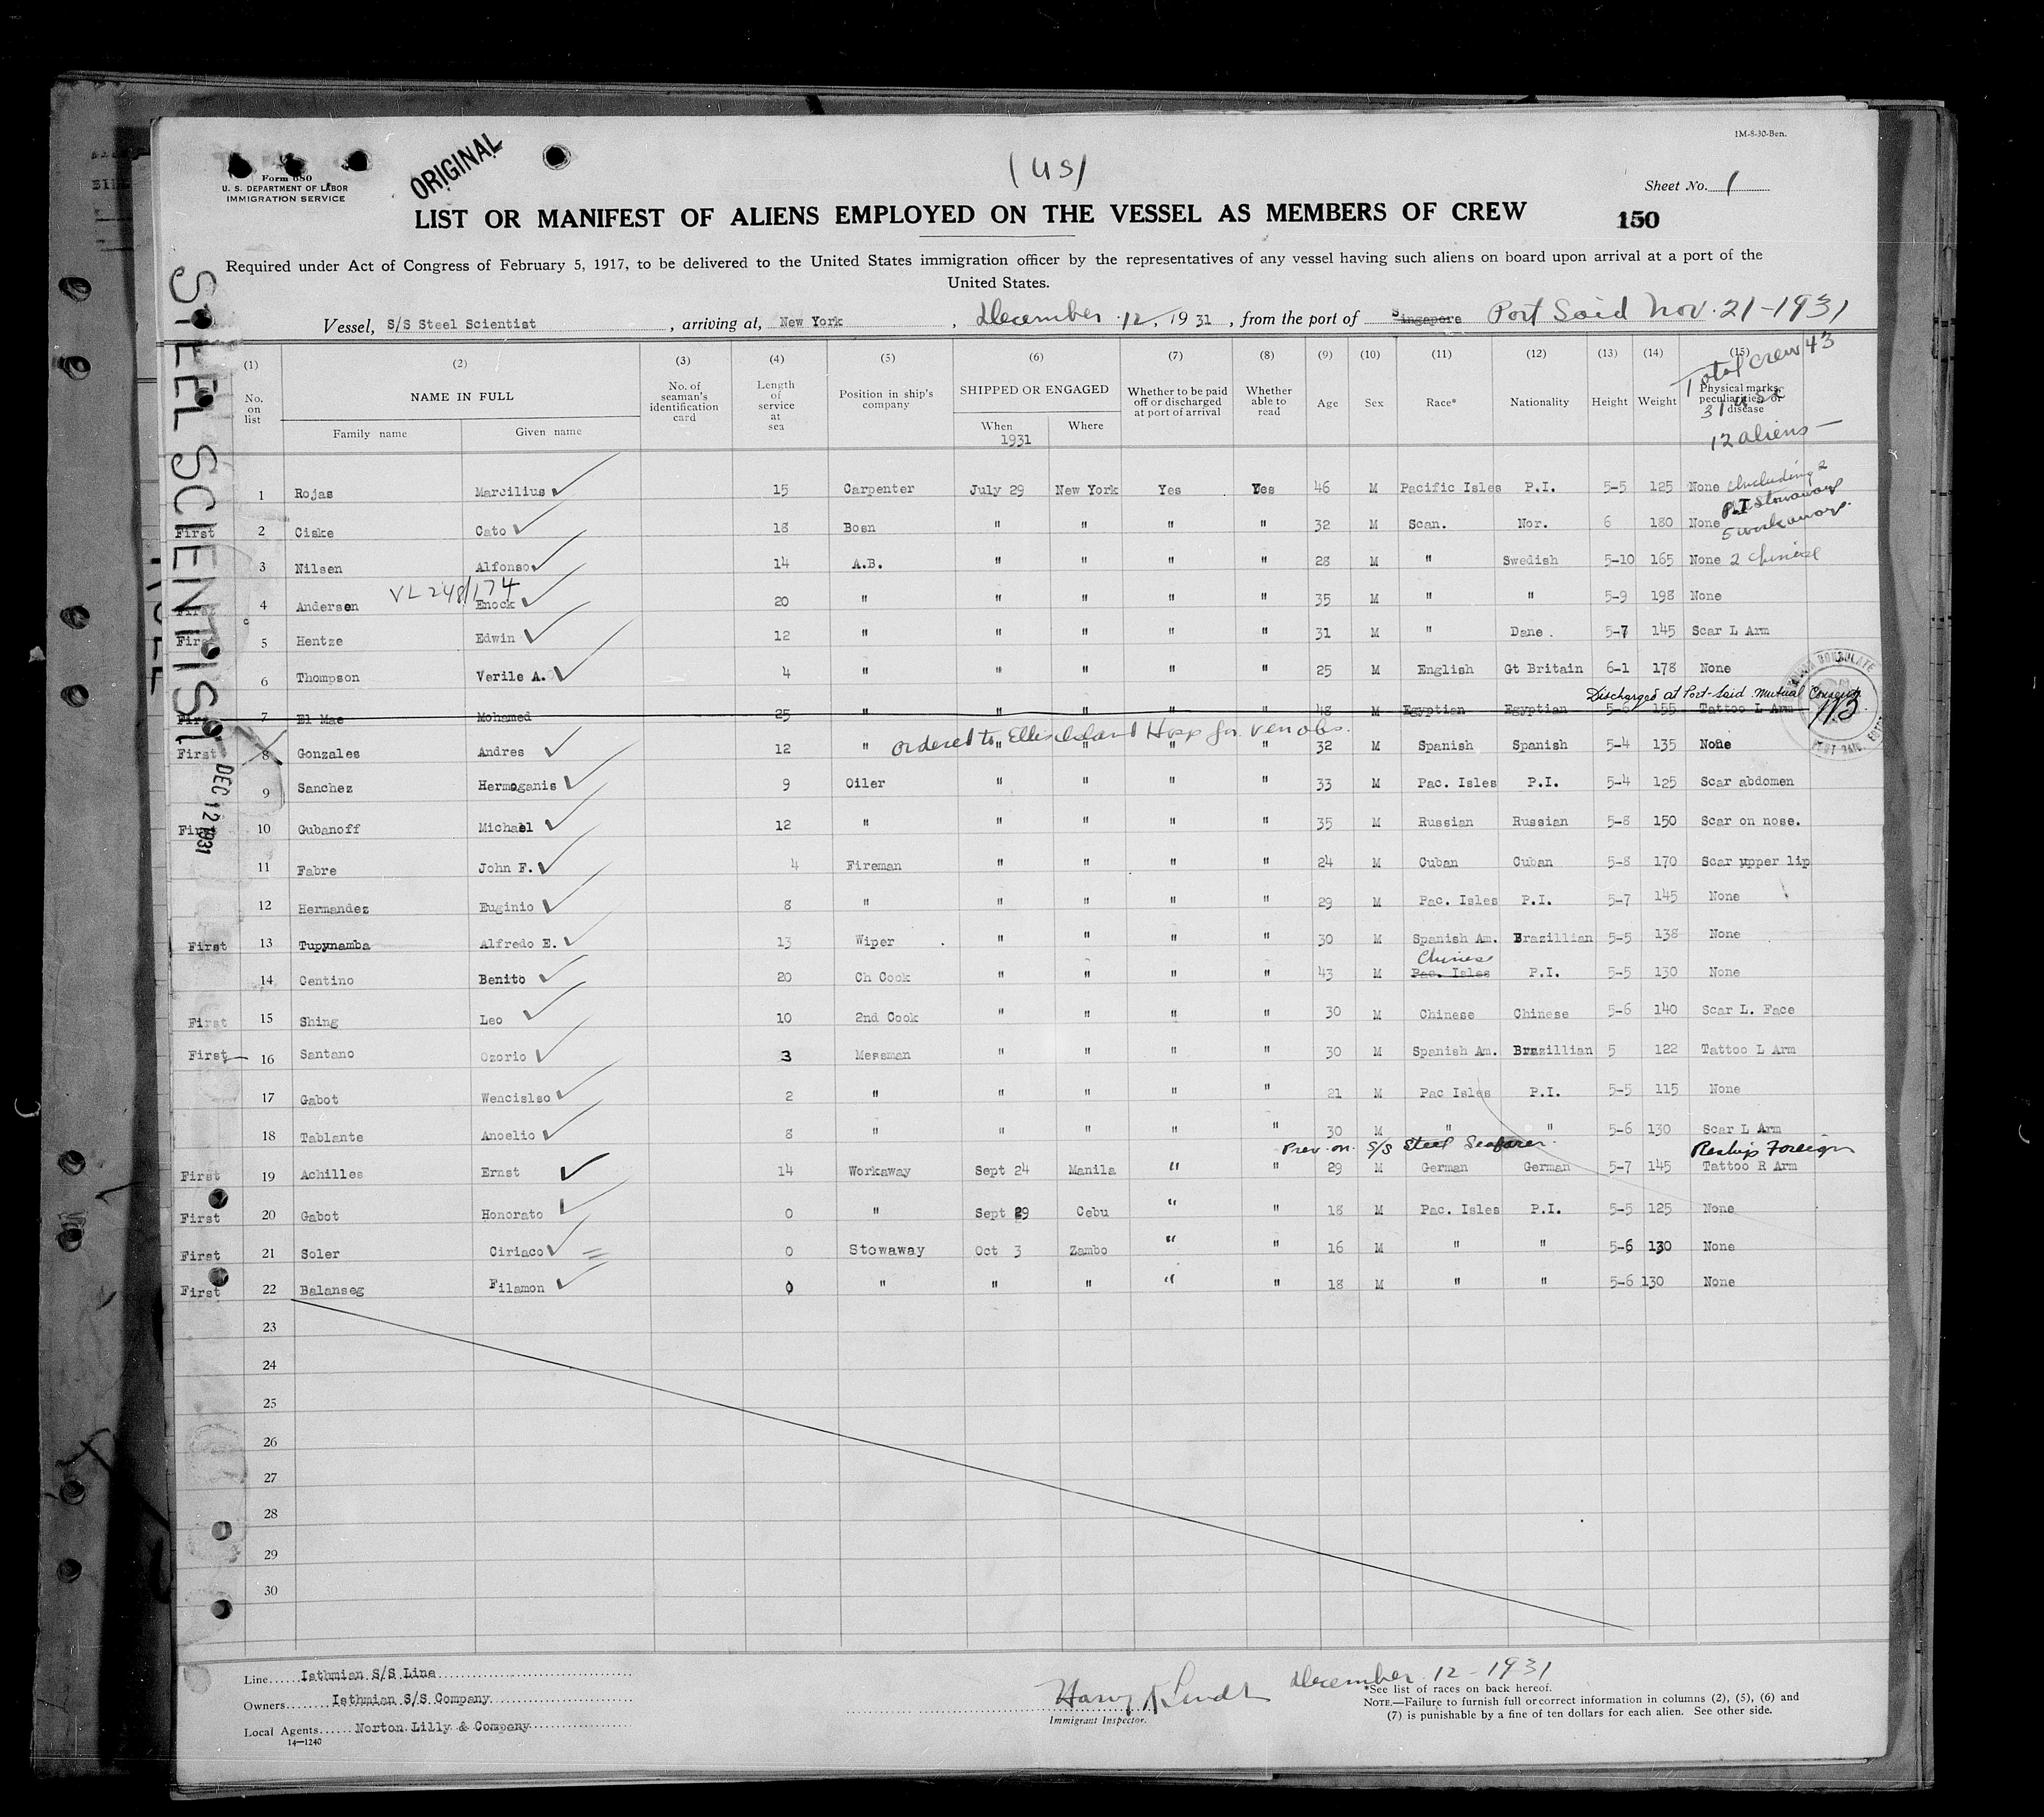 1M-8-30-Ben.
Form 680
U. S. DEPARTMENT OF LABOR
IMMIGRATION SERVICE
ORIGINAL
(US)
Sheet No. 1
LIST OR MANIFEST OF ALIENS EMPLOYED ON THE VESSEL AS MEMBERS OF CREW
150
Required under Act of Congress of February 5, 1917, to be delivered to the United States immigration officer by the representatives of any vessel having such aliens on board upon arrival at a port of the
United States.
Vessel, S/S Steel Scientist, arriving at, New York, December 12, 1931, from the port of Singapore Port Said Nov. 21-1931
STEEL SCIENTIST
DEC 12 1931
(1) (2) (3) (4) (5) (6) (7) (8) (9) (10) (11) (12) (13) (14) (15)
No. on list
NAME IN FULL
Family name Given name
No. of seaman's identification card
Length of service at sea
Position in ship's company
SHIPPED OR ENGAGED
When 1931 Where
Whether to be paid off or discharged at port of arrival
Whether able to read
Age Sex Race* Nationality Height Weight
Physical marks, peculiarities or disease
Total crew 43
31 USC
12 aliens —
1 Rojas Marcilius 15 Carpenter July 29 New York Yes Yes 46 M Pacific Isles P.I. 5-5 125 None including 2
P.I. Stowaways
First 2 Ciske Cato 18 Bosn " " " " 32 M Scan. Nor. 6 180 None
5 workaways.
3 Nilsen Alfonso 14 A.B. " " " " 28 M " Swedish 5-10 165 None 2 Chinese
VL 248/174
First 4 Andersen Enock 20 " " " " " 35 M " " 5-9 198 None
First 5 Hentze Edwin 12 " " " " " 31 M " Dane. 5-7 145 Scar L Arm
6 Thompson Verile A. 4 " " " " " 25 M English Gt Britain 6-1 178 None
Discharged at Port-Said. Mutual Consent
First 7 El Mae Mohamed 25 " " " " " 48 M Egyptian Egyptian 5-6 155 Tattoo L Arm
ordered to Ellis Island Hosp for ven obs.
First 8 Gonzales Andres 12 " " " " " 32 M Spanish Spanish 5-4 135 None
9 Sanchez Hermoganis 9 Oiler " " " " 33 M Pac. Isles P.I. 5-4 125 Scar abdomen
First 10 Gubanoff Michael 12 " " " " " 35 M Russian Russian 5-8 150 Scar on nose.
11 Fabre John F. 4 Fireman " " " " 24 M Cuban Cuban 5-8 170 Scar upper lip
12 Hernandez Euginio 8 " " " " " 29 M Pac. Isles P.I. 5-7 145 None
First 13 Tupynamba Alfredo E. 13 Wiper " " " " 30 M Spanish Am. Brazillian 5-5 138 None
Chinese
14 Centino Benito 20 Ch Cook " " " " 43 M Pac. Isles P.I. 5-5 130 None
First 15 Shing Leo 10 2nd Cook " " " " 30 M Chinese Chinese 5-6 140 Scar L. Face
First 16 Santano Ozorio 3 Messman " " " " 30 M Spanish Am. Brazillian 5 122 Tattoo L Arm
17 Gabot Wencislso 2 " " " " " 21 M Pac Isles P.I. 5-5 115 None
18 Tablante Anoelio 8 " " " " " 30 M " " 5-6 130 Scar L Arm
Prev. on. S/S Steel Seafarer. Reship Foreign
First 19 Achilles Ernst 14 Workaway Sept 24 Manila " " 29 M German German 5-7 145 Tattoo R Arm
First 20 Gabot Honorato 0 " Sept 29 Cebu " " 18 M Pac. Isles P.I. 5-5 125 None
First 21 Soler Ciriaco 0 Stowaway Oct 3 Zambo " " 16 M " " 5-6 130 None
First 22 Balanseg Filamon 0 " " " " " 18 M " " 5-6 130 None
23
24
25
26
27
28
29
30
Line Isthmian S/S Line
Owners Isthmian S/S Company
Local Agents Norton Lilly & Company
14—1240
December 12-1931
Immigrant Inspector.
*See list of races on back hereof.
NOTE.—Failure to furnish full or correct information in columns (2), (5), (6) and
(7) is punishable by a fine of ten dollars for each alien. See other side.